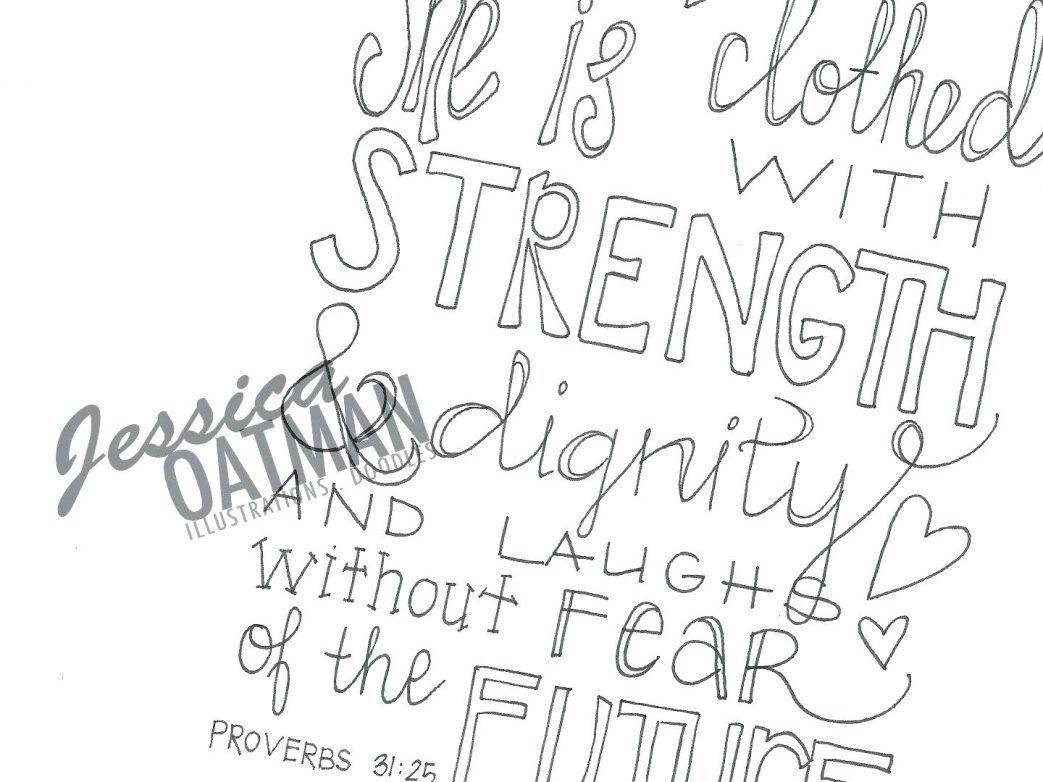 She is clothed
WITH
STRENGTH
& dignity
AND LAUGHS
without FeaR
of the FUTURE
PROVERBS 31:25
Jessica
OATMAN
ILLUSTRATIONS . DOODLES